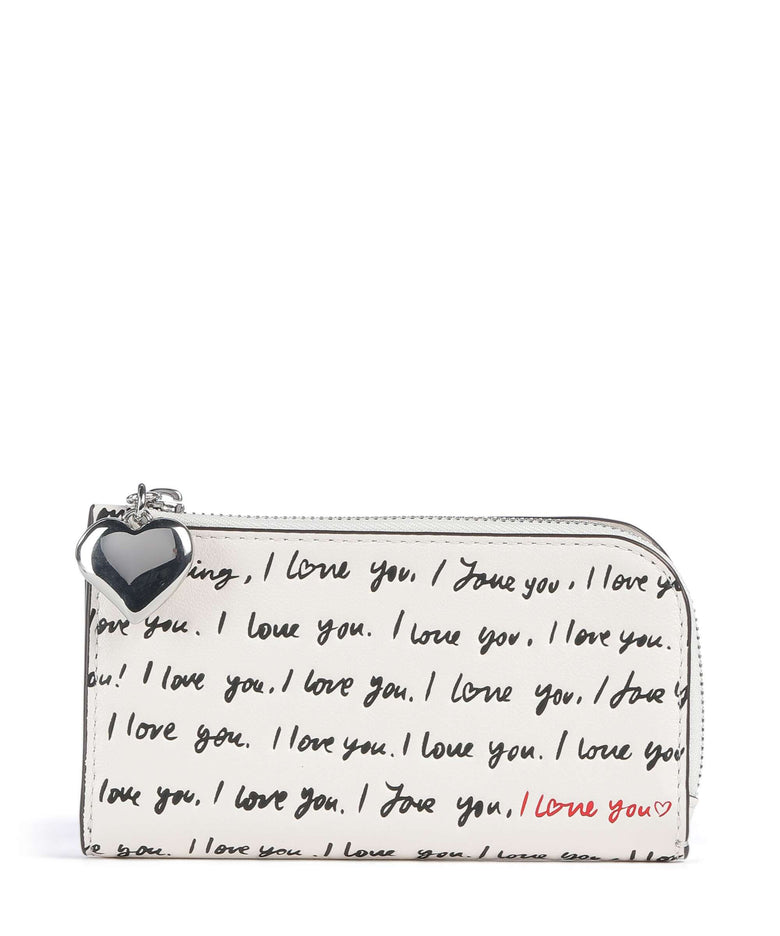 ing, I love you. I love you. I love y
love you. I love you. I love you. I love you.
ou! I love you. I love you. I love you. I love y
I love you. I love you. I love you. I love you
love you. I love you. I love you, I love you♡
e you. I love you. I love you. I love you. I lo